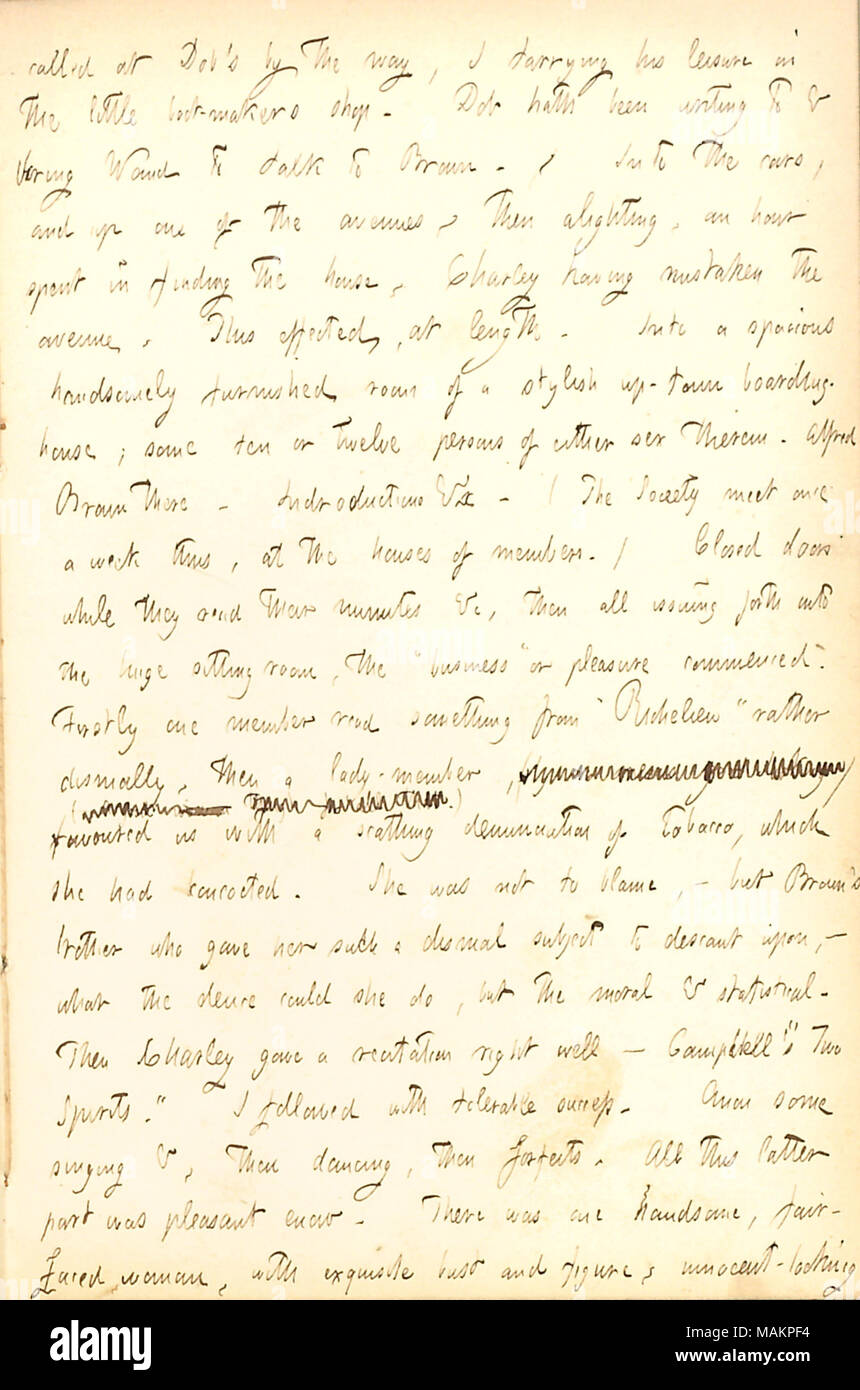 called at Dob's by the way, I tarrying his leisure in
the little boot-makers shop. Dob hath been writing to &
boring Waud to talk to Brown. / Into the cars,
and up one of the avenues, then alighting, an hour
spent in finding the house, Charley having mistaken the
avenue. This effected, at length. Into a spacious
handsomely furnished room of a stylish up-town boarding-
house; some ten or twelve persons of either sex therein. Alfred
Brown there - Introductions &c - ( The Society meet once
a week thus, at the houses of members. ) Closed doors
while they read their minutes &c, then all issuing forth into
the huge sitting room, the "business" or pleasure commenced.
Firstly one member read something from "Richelieu" rather
dismally, then a lady-member,
favoured us with a scathing denunciation of Tobacco, which
she had concocted. She was not to blame, - but Brown's
brother who gave her such a dismal subject to descant upon, -
what the deuce could she do, but the moral & statistical.
Then Charley gave a recitation right well - Campbell's "Two
Spirits." I followed with tolerable success. Anon some
singing &, then dancing, then forfeits. All this latter
part was pleasant enow. There was one handsome, fair-
faced woman, with exquisite bust and figure, innocent-looking
alamy
Image ID: MAKPF4
www.alamy.com